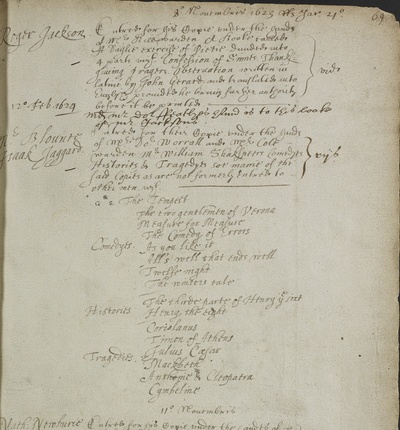 8° Novembris 1623 Rs Jac. 21° 69
Roger Jackson
Entred for his Copie under the hands
of
A Daylie exercise of Pietie divided into
4 parts viz Confession of Sinns Thanks
giving Prayers Observation written in
latine by John Gerard and translated into
English provided he bring further authority
before it be printed
vjd
12° Feb. 1624
Mr Blounte
Isaak Jaggard
Entred for their Copie under the hands
of Mr Doc Worrall and Mr Cole
warden Mr William Shakspeers Comedyes
Histories & Tragedyes soe manie of the
said Copies as are not formerly entred to
other men vizt
vijs
The Tempest
The two gentlemen of Verona
Measure for Measure
The Comedy of Errors
Comedyes As you like it
All's well that ends well
Twelfe night
The winters tale
Histories The thirde parte of Henry ye sixt
Henry the eight
Coriolanus
Timon of Athens
Tragedies Julius Cæsar
Mackbeth
Anthonie & Cleopatra
Cymbeline
11° Novembris
Nath Newberie Entred for his Copie under the hands of